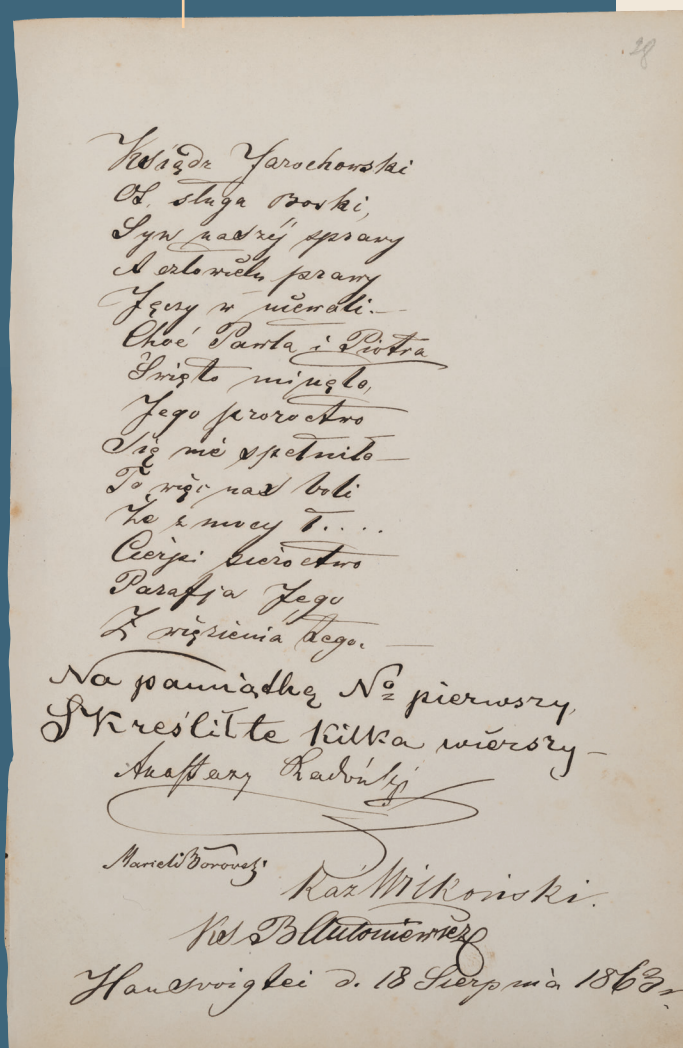 28
Ksiądz Jarochowski
Ot, sługa Boski,
Syn naszéj sprawy
A człowiek prawy
Jęczy w niewoli.—
Choć Pawła i Piotra
Święto minęło,
Jego proroctwo
Się nié spełniło—
To więc nas boli
Że z mocy T....
Cierpi sieroctwo
Parafja Jego
Z więzienia tego.—
Na pamiątkę No pierwszy,
Skreślił te kilka wierszy—
Anastazy Radoński
Marceli Borowski
Kaź Wilkoński.
Ks B Antoniewicz
Hausvoigtei d. 18 Sierpnia 1863r.